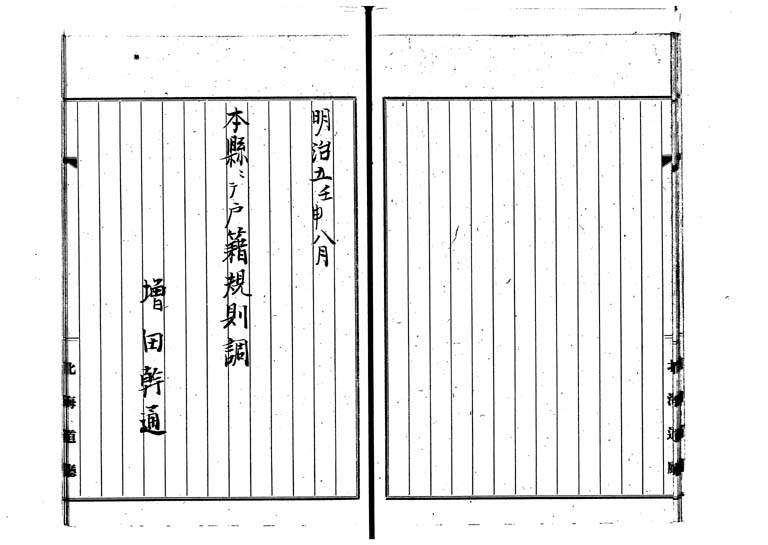 明治五壬申八月
本縣ニテ戸籍規則調
増田幹通
北海道廳
北海道廳